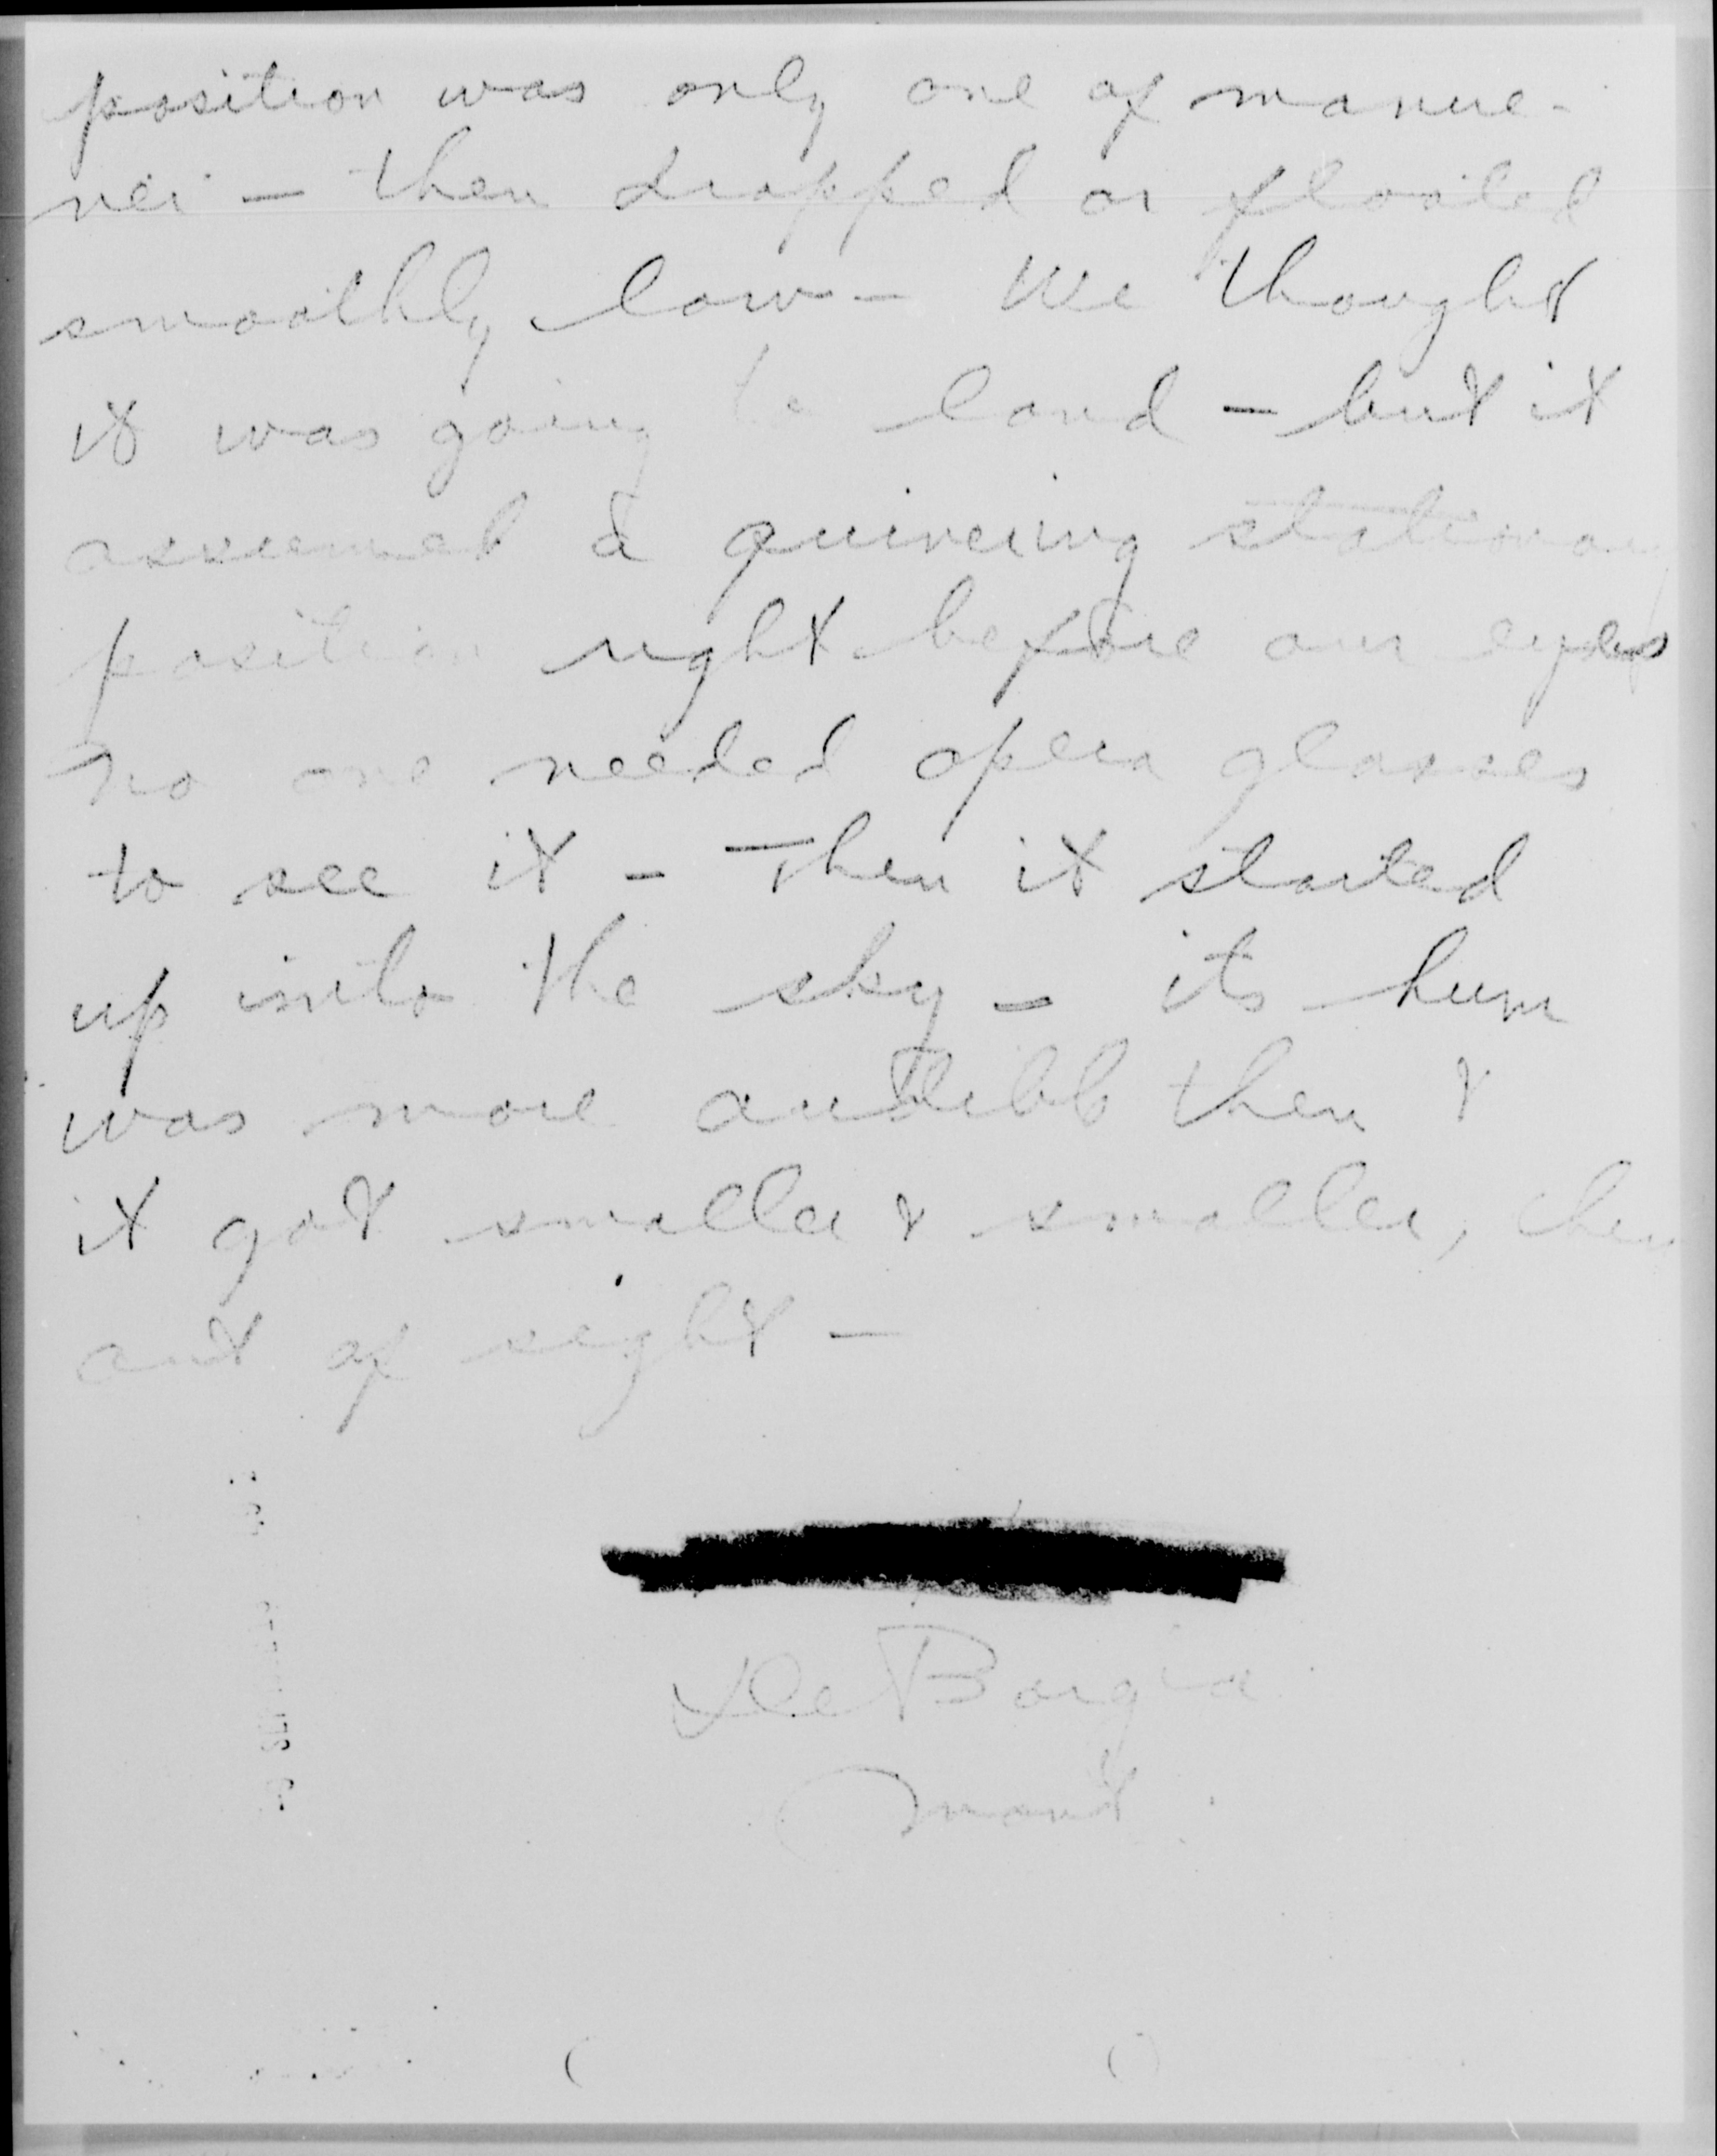 position was only one of manue-
ver — then dropped or floated
smoothly low — We thought
it was going to land — but it
assumed a quivering stationary
position right before our eyes
no one needed opera glasses
to see it — Then it started
up into the sky — its hum
was more audible then &
it got smaller & smaller, then
out of sight —
De Borgia
Mont.